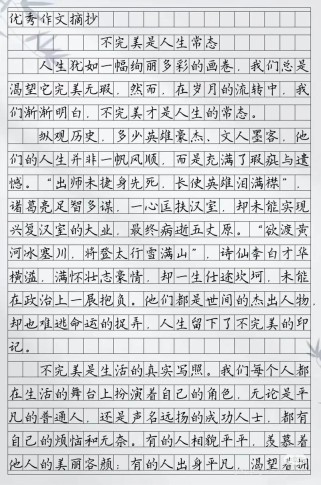 优秀作文摘抄
不完美是人生常态
人生犹如一幅绚丽多彩的画卷，我们总是
渴望它完美无瑕，然而，在岁月的流转中，我
们渐渐明白，不完美才是人生的常态。
纵观历史，多少英雄豪杰、文人墨客，他
们的人生并非一帆风顺，而是充满了瑕疵与遗
憾。“出师未捷身先死，长使英雄泪满襟”，
诸葛亮足智多谋，一心匡扶汉室，却未能实现
兴复汉室的大业，最终病逝五丈原。“欲渡黄
河冰塞川，将登太行雪满山”，诗仙李白才华
横溢，满怀壮志豪情，却一生仕途坎坷，未能
在政治上一展抱负。他们都是世间的杰出人物，
却也难逃命运的捉弄，人生留下了不完美的印
记。
不完美是生活的真实写照。我们每个人都
在生活的舞台上扮演着自己的角色，无论是平
凡的普通人，还是声名远扬的成功人士，都有
自己的烦恼和无奈。有的人相貌平平，羡慕着
他人的美丽容颜；有的人出身平凡，渴望着